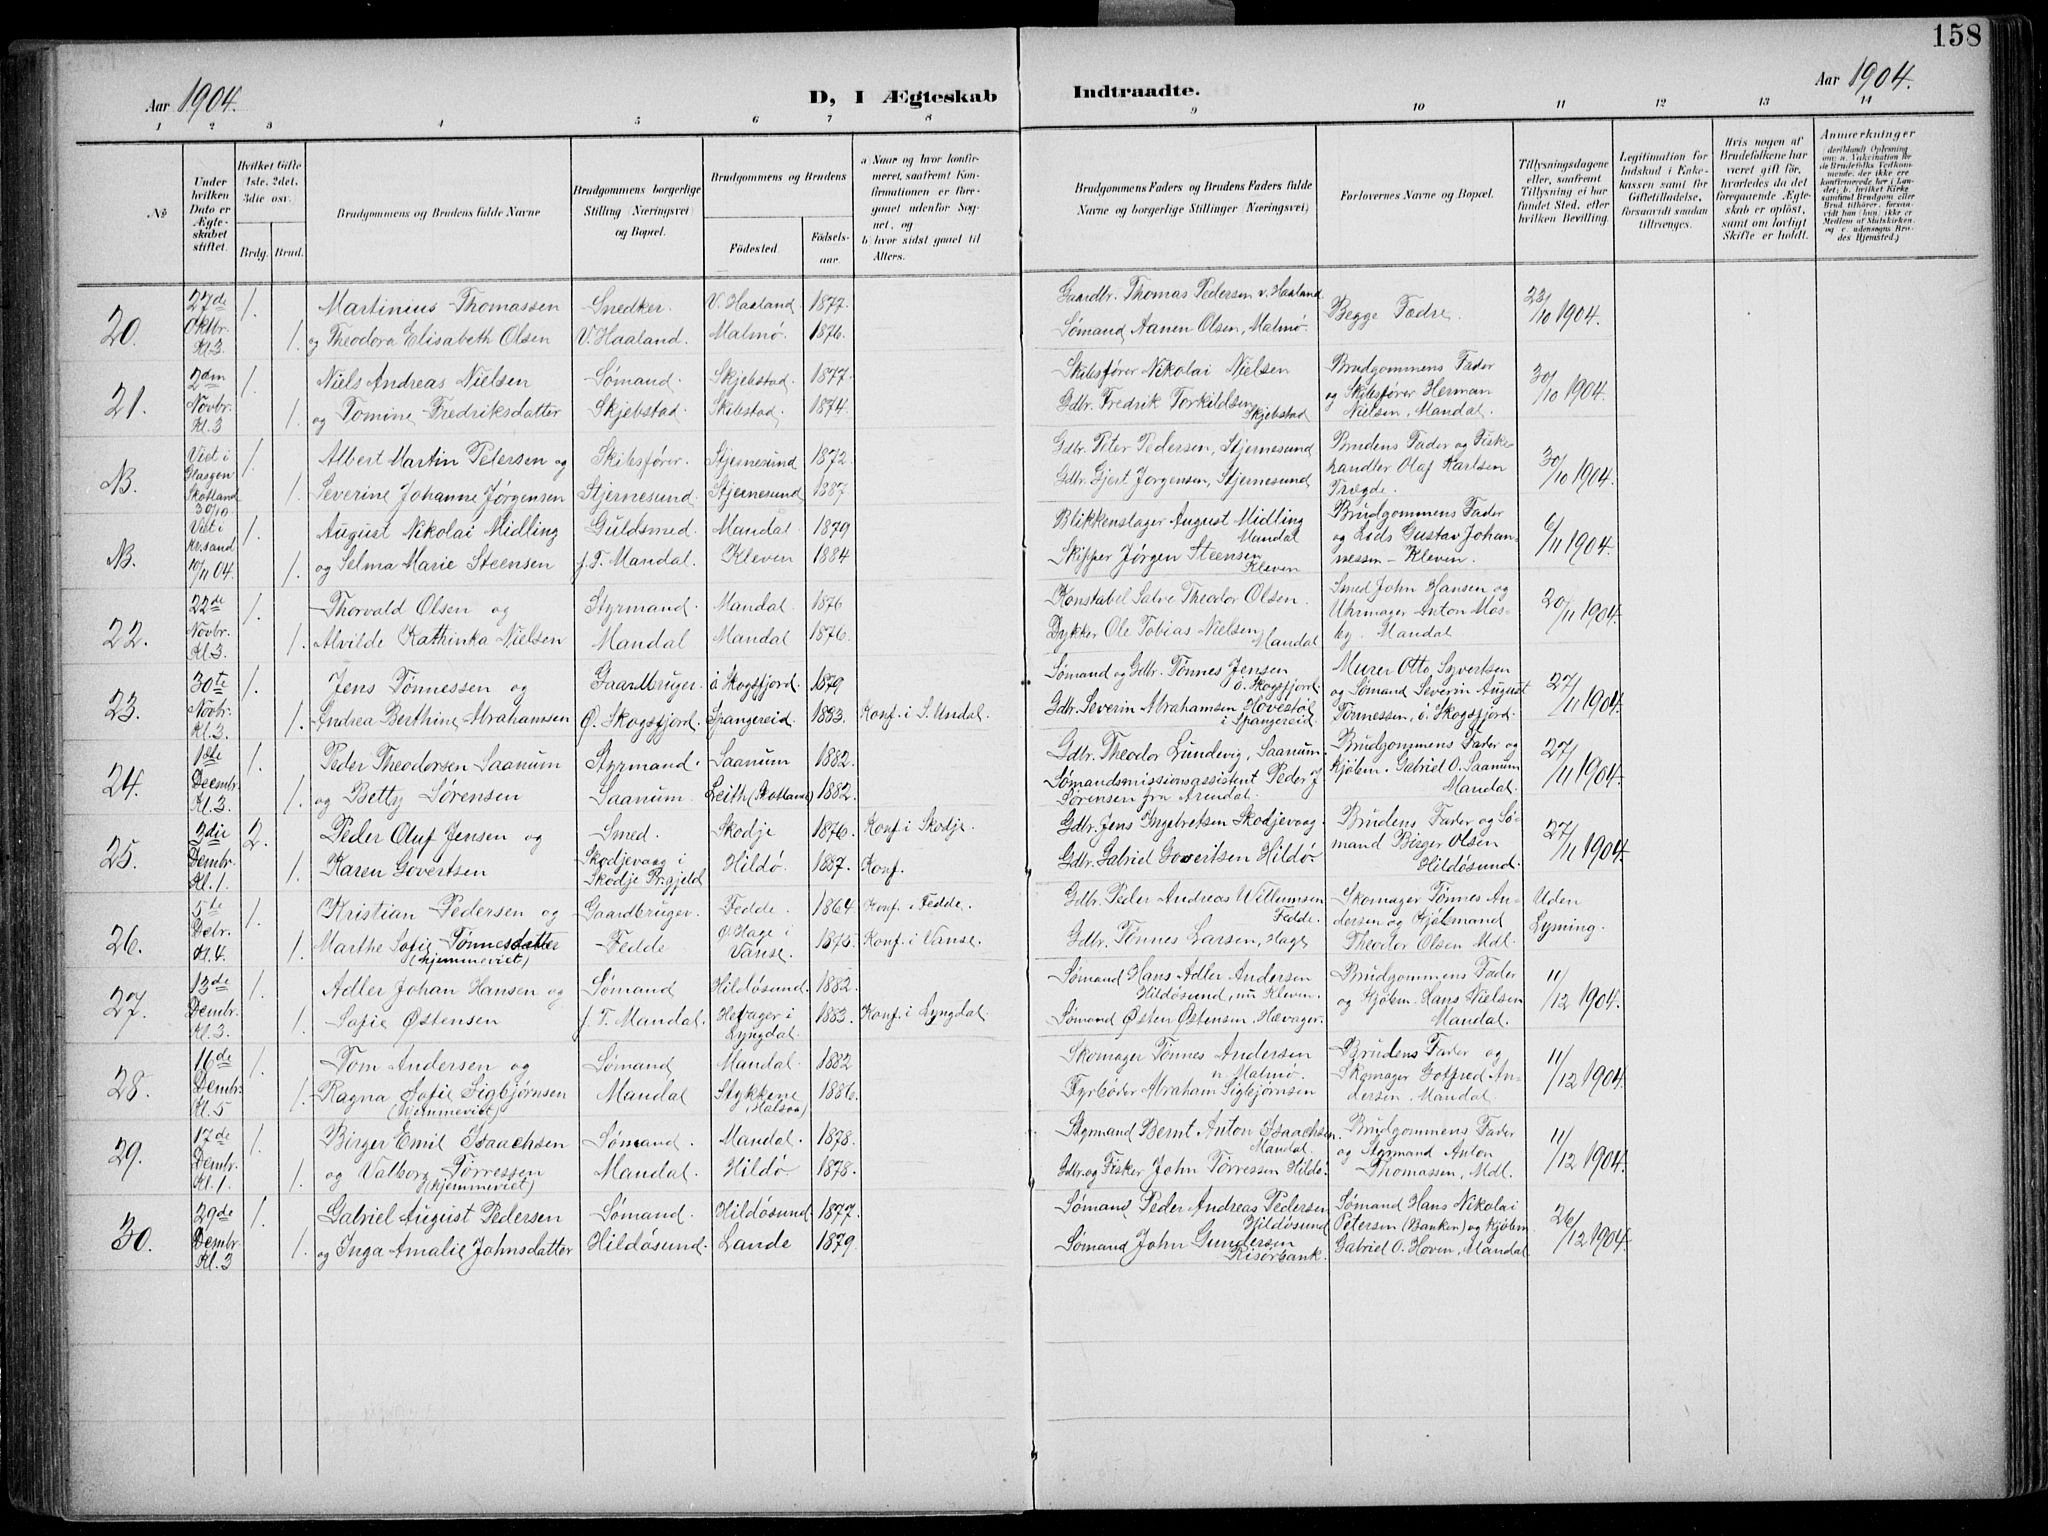 158
Aar 1904.
D, I Ægteskab Indtraadte.
Aar 1904.
1 2 3 4 5 6 7 8 9 10 11 12 13 14
№
Under hvilken Dato er Ægteskabet stiftet.
Hvilket Gifte 1ste, 2det, 3die osv.
Brdg. Brud.
Brudgommens og Brudens fulde Navne
Brudgommens borgerlige Stilling (Næringsvei) og Bopæl.
Brudgommens og Brudens
Födested. Födselsaar.
a) Naar og hvor konfirmeret, saafremt Konfirmationen er foregaaet udenför Sognet, og
b) hvor sidst gaaet til Alters.
Brudgommens Faders og Brudens Faders fulde Navne og borgerlige Stillinger (Næringsvei)
Forlovernes Navne og Bopæl.
Tillysningsdagene eller, saafremt Tillysning ei har fundet Sted, efter hvilken Bevilling.
Legitimation for Indskud i Enkekassen samt for Giftetilladelse, forsaavidt saadan tiltrænges.
Hvis nogen af Brudefolkene har været gift för, hvorledes da det foregaaende Ægteskab er oplöst, samt om lovligt Skifte er holdt.
Anmærkninger (deriblandt Oplysning om: a. Vakcination for de Brudefolks Vedkommende, der ikke ere konfirmerede her i Landet; b. hvilket Kirkesamfund Brudgom eller Brud tilhörer, forsaavidt han (hun) ikke er Medlem af Statskirken, og c. udensogns Brudes Hjemsted.)
20. 27de Oktbr. Kl. 3. 1. Martinius Thomassen Snedker. V. Haaland 1877. Gaardbr. Thomas Pedersen v. Haaland Begge Fædre. 23/10 1904.
1. og Theodora Elisabeth Olsen V. Haaland. Malmø. 1876. Sømand Aanen Olsen, Malmø.
21. 2den Novbr. Kl. 3 1. Niels Andreas Nielsen Sømand. Skjebstad. 1877. Skibsfører Nikolai Nielsen Brudgommens Fader 30/10 1904.
1. og Tomine Fredriksdatter Skjebstad. Skibstad. 1874. Gdbr. Fredrik Torkildsen Skjebstad og Skibsfører Herman Nielsen, Mandal.
NB. Viet i Glasgow Skotland 30/10 1. Albert Martin Petersen og Skibsfører. Stjernesund 1872. Gdbr. Peter Pedersen, Stjernesund Brudens Fader og Fiske- 30/10 1904.
1. Severine Johanne Jørgensen Stjernesund. Stjernesund 1887 Gdbr. Gjert Jørgensen, Stjernesund handler Olaf Karlsen Trægde.
NB. Viet i Kr.sand 10/11 04. 1. August Nikolai Midling Guldsmed. Mandal 1879 Blikkenslager August Midling Mandal Brudgommens Fader 6/11 1904.
1. og Selma Marie Steensen f. T. Mandal. Kleven 1884 Skipper Jørgen Steensen Kleven og Lods Gustav Johannessen - Kleven.
22. 22de Novbr. Kl. 3. 1. Thorvald Olsen og Styrmand. Mandal. 1876 Konstabel Salve Theodor Olsen. Smed John Hansen og 20/11 1904.
1. Alvilde Kathinka Nielsen Mandal Mandal 1876. Dykker Ole Tobias Nielsen, Mandal Uhrmager Anton Mosby. Mandal.
23. 30te Novbr. Kl. 3. 1. Jens Tønnessen og Gaardbruger. ö Skogsfjord. 1879 Sømand og Gdbr. Tønnes Jensen ö. Skogsfjord. Murer Otto Syvertsen 27/11 1904.
1. Andrea Berthine Abrahamsen Ø. Skogsfjord. Spangereid. 1883. Konf. i S. Undal. Gdbr. Severin Abrahamsen Hovestøl i Spangereid. og Sømand Severin August Tönnessen, ö. Skogsfjord.
24. 1ste Decembr. Kl. 3. 1. Peder Theodorsen Saanum Styrmand. Saanum 1882. Gdbr. Theodor Lundevig, Saanum. Brudgommens Fader og 27/11 1904.
1. og Betty Sörensen Saanum. Leith (Skotland) 1882. Sømandsmissionsassistent Peder J. Sörensen fra Arendal. Kjöbm. Gabriel O. Saanum Mandal.
25. 3die Dcmbr. Kl. 1. 2. Peder Oluf Jensen og Smed. Skodje 1876. Konf. i Skodje. Gdbr. Jens Ingebretsen Skodjevaag. Brudens Fader og Sø- 27/11 1904.
1. Karen Govertsen Skodjevaag i Skodje Prægjeld Hildö. 1887. Konf. Gdbr. Gabriel Govertsen Hildö. mand Birger Olsen Hildösund.
26. 5te Dcbr. Kl. 4. 1. Kristian Pedersen og Gaardbruger. Fedde. 1864. Konf. i Fedde. Gdbr. Peder Andreas Willumsen Fedde. Skomager Tønnes An- Uden
1. Marthe Sofie Tønnesdatter (hjemmeviet) Fedde Ø. Hage i Vanse. 1875. Konf. i Vanse. Gdbr. Tönnes Larsen, Hage dersen og Kjöbmand Theodor Olsen Mdl. Lysning.
27. 13de Dcmbr. Kl. 3. 1. Adler Johan Hansen og Sømand Hildösund. 1882. Sømand Hans Adler Andersen Hildösund, nu Kleven. Brudgommens Fader 11/12 1904.
1. Sofie Østensen f. T. Mandal. Hevager i Lyngdal 1883. Konf. i Lyngdal. Sømand Østen Østensen, Hævager. og Kjöbm. Hans Nielsen Mandal.
28. 16de Dcmbr. Kl. 5 1. Tom Andersen og Sømand Mandal. 1882 Skomager Tønnes Andersen Malmø. Brudens Fader og 11/12 1904.
1. Ragna Sofie Sigbjørnsen (hjemmeviet) Mandal Stykkene (Halsaa) 1886. Fyrböder Abraham Sigbjørnsen Skomager Gotfred Andersen, Mandal.
29. 17de Dcmbr. Kl. 1. 1. Birger Emil Isaachsen Sømand. Mandal. 1878. Styrmand Bernt Anton Isaachsen. Mandal. Brudgommens Fader 11/12 1904.
1. og Valborg Törressen (hjemmeviet) Mandal. Hildö 1878. Gdbr. og Fisker John Törressen Hildö. og Styrmand Anton Thomassen, Mdl.
30. 29de Dcmbr. Kl. 3 1. Gabriel August Pedersen Sømand. Hildösund 1877. Sømand Peder Andreas Pedersen Hildösund Sømand Hans Nikolai 26/12 1904.
1. og Inga Amalie Johnsdatter Hildösund. Lande 1879. Sømand John Gundersen Risörbank. Petersen (Banken) og Kjöbm. Gabriel O. Hoven, Mandal